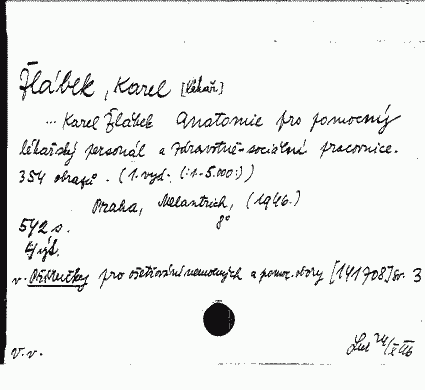 Žlábek, Karel [lékař]
... Karel Žlábek Anatomie pro pomocný
lékařský personál a zdravotně-sociální pracovnice.
354 obrazů. (1. vyd. (:1.-5.000:)
Praha, Melantrich, (1946.)
8°
542 s.
v. Příručky pro ošetřování nemocných a pomoc. obory [141708] sv. 3
V. v.